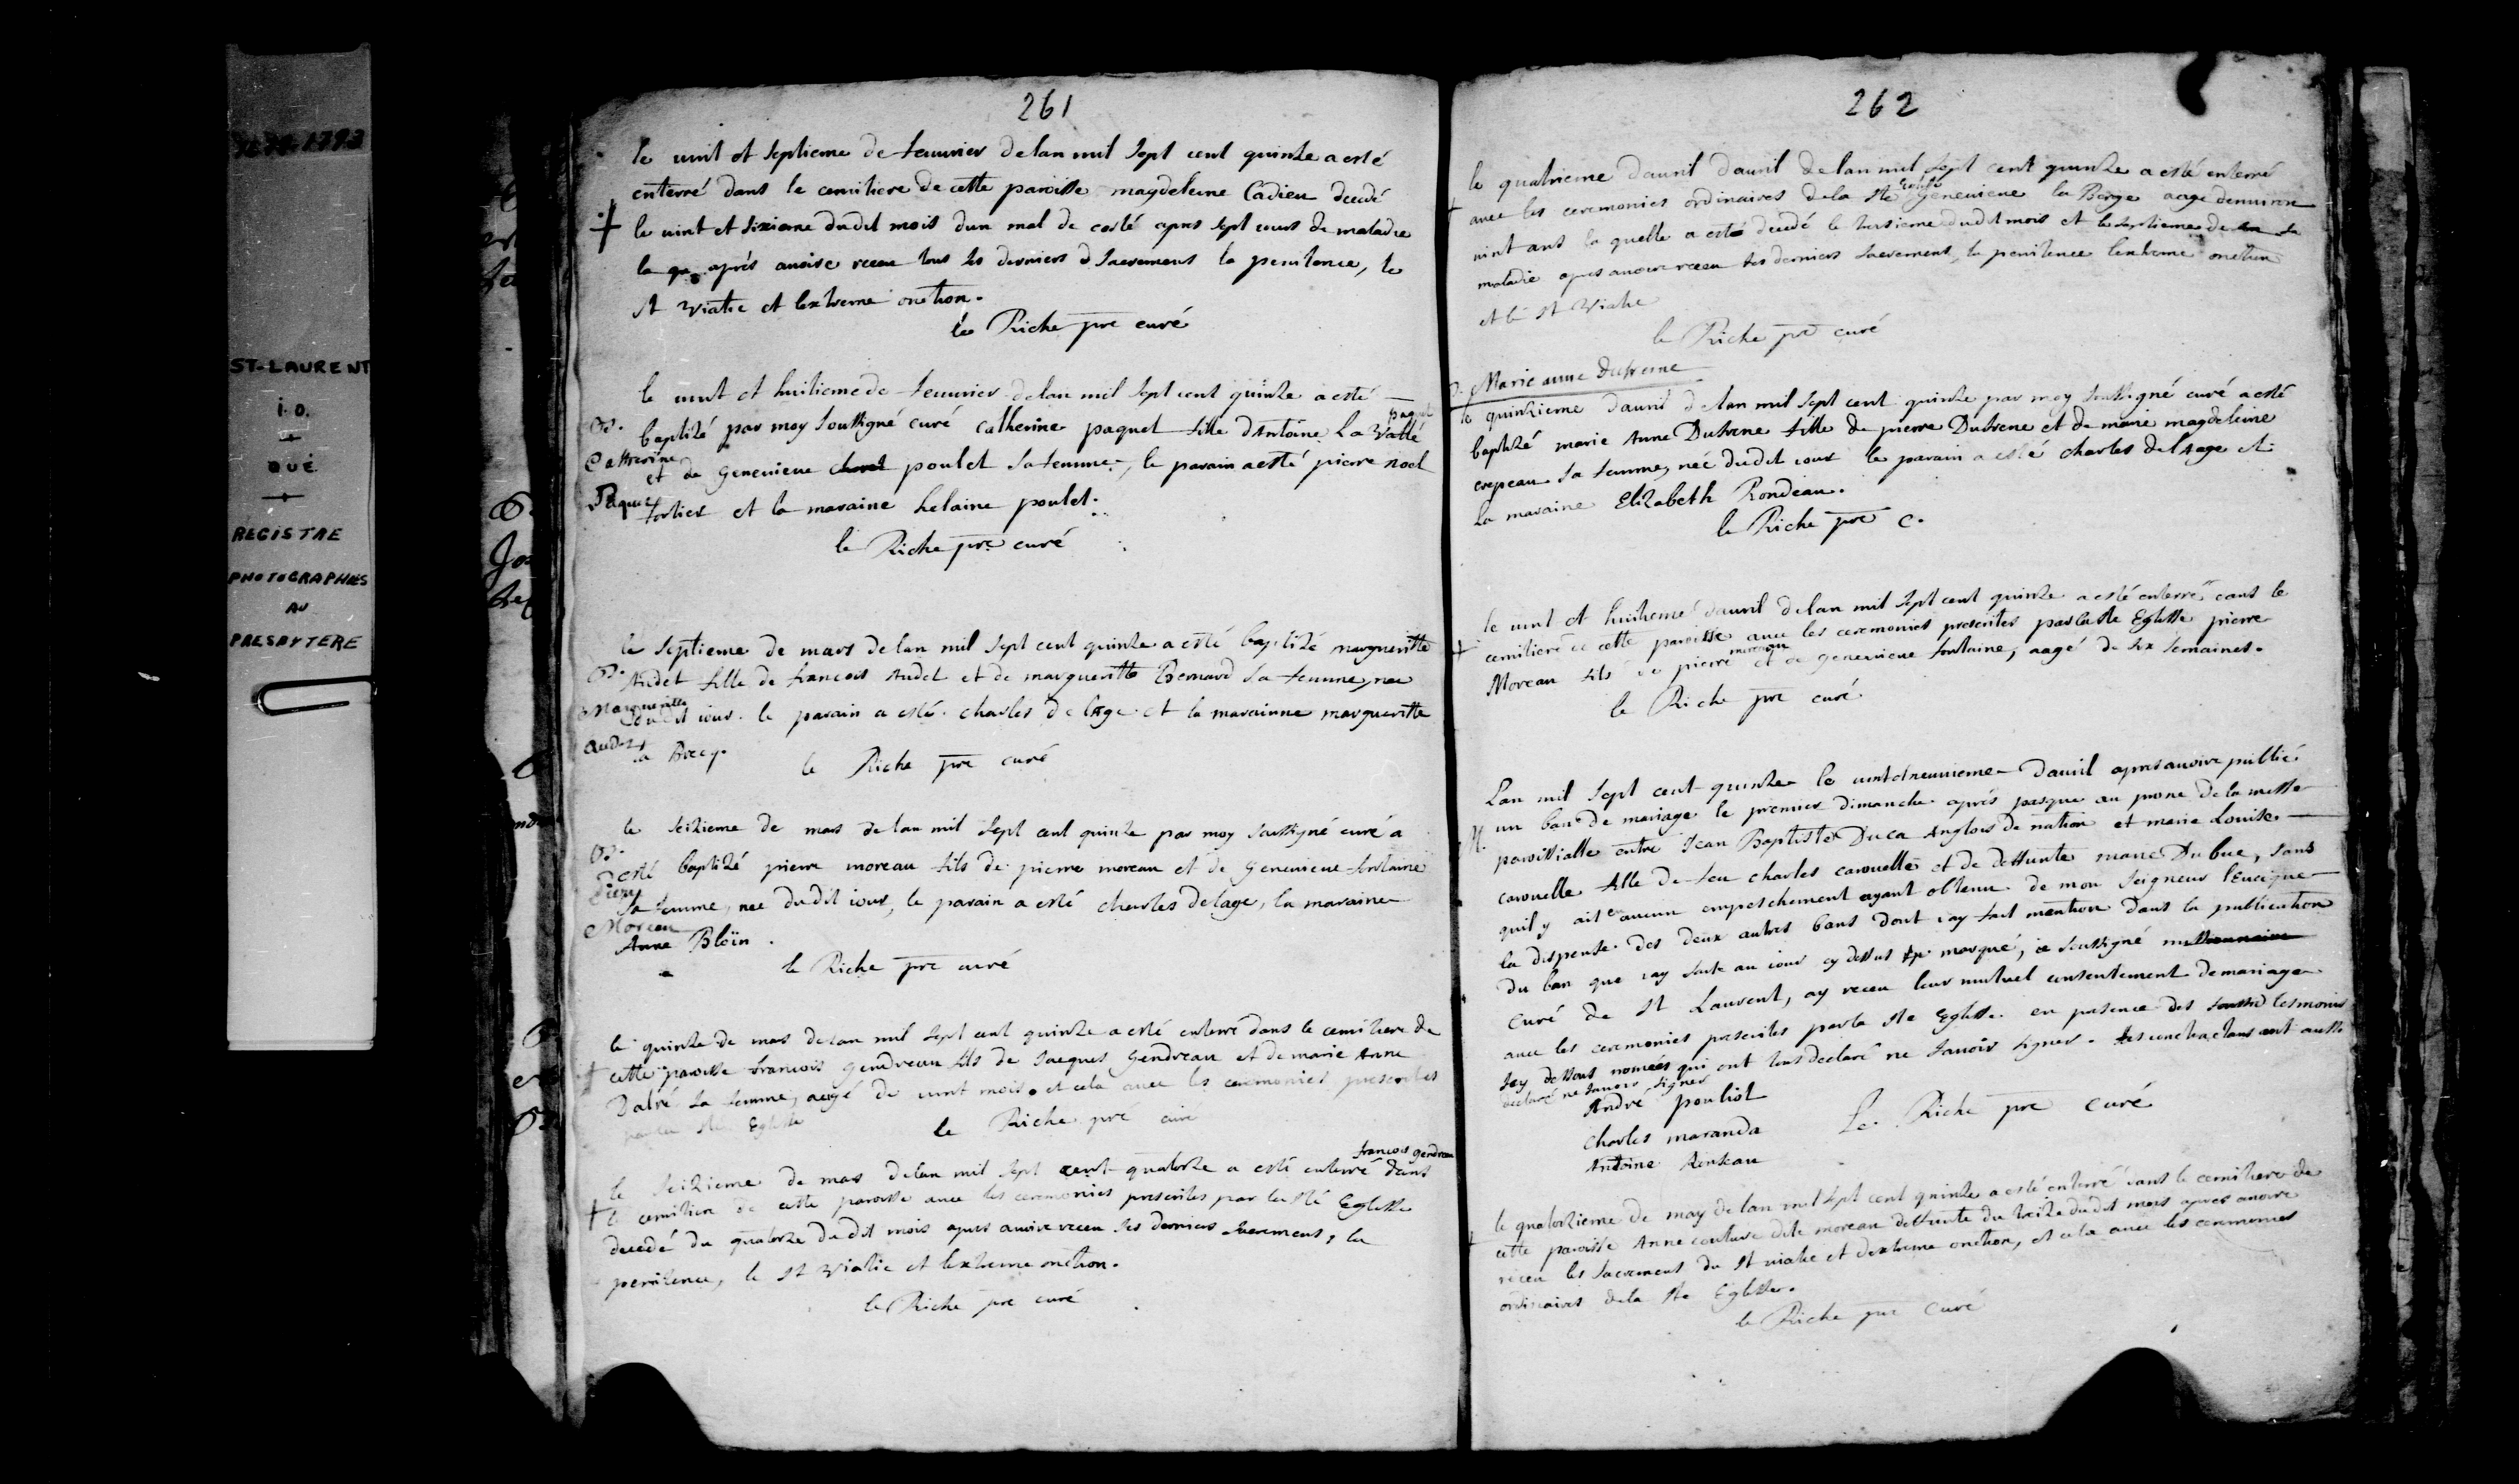 1679-1793
ST-LAURENT
I.O.
QUÉ
REGISTRE
PHOTOGRAPHIES
AU
PRESBYTERE
261
le vint et septieme de feuvrier de lan mil sept cent quinze a esté
enterré dans le cemitiere de cette paroisse magdeleine Cadieu decedé
le vint et sixieme dudit mois dun mal de costé apres sept iours de maladie
la qu après avoire receu tous les derniers Sacrements la penitence, le
St Viatic et lextreme onction.
le Riche pre curé
le vint et huitieme de feuvrier de lan mil sept cent quinze a esté
B.
Catherine
Paquet
baptizé par moy soussigné curé Catherine paquet fille dAntoine paquet La Vallé
et de Genevieve poulet sa femme, le parain a esté pierre noel
fortier et la maraine helaine poulet.
le Riche pre curé
le septieme de mars de lan mil sept cent quinze a esté baptizé margueritte
B.
Margueritte
audet
Audet fille de francois Audet et de margueritte Bernard sa femme, nee
dudit iour. le parain a esté charles delage et la marainne margueritte
la Brecq.
le Riche pre curé
le seizieme de mars de lan mil sept cent quinze par moy soussigné curé a
B.
Pierre
Moreau
esté baptizé pierre moreau fils de pierre moreau et de Genevieve fontaine
sa femme, nee dudit iour, le parain a esté charles delage, la maraine
Anne Bloüin.
le Riche pre curé
le quinze de mars de lan mil sept cent quinze a esté enterré dans le cemitiere de
cette paroisse francois Gendreau fils de Jacques Gendreau et de marie Anne
Dalré sa femme, aagé de vint mois. et cela avec les ceremonies prescrites
par la Ste Eglisse
le Riche pre curé
le seizieme de mars de lan mil sept cent quatorze a esté enterré francois gendreau dans
le cemitiere de cette paroisse avec les ceremonies prescrites par la Ste Eglisse
decedé du quatorze dudit mois apres avoire receu les derniers sacrements, la
penitence, le St Viatic et lextreme onction.
le Riche pre curé
262
le quatrieme dauril dauril de lan mil sept cent quinze a esté enterré
avec les ceremonies ordinaires de la Ste Eglisse Genevieve la Berge aage denuiron
vint ans la quelle a esté decedé le troisieme dudit mois et le septieme de sa
maladie apres avoire receu les derniers sacrements, la penitence lextreme onction
et le St Viatic
le Riche pre curé
B. Marie anne Dufresne
le quinzieme dauril de lan mil sept cent quinze par moy soussigné curé a esté
baptizé marie Anne Dufrene fille de pierre Dufrene et de marie magdeleine
crepeau sa femme, neé dudit iour le parain a esté charles delAage et
la maraine Elizabeth Rondeau.
le Riche pre c.
le vint et huitieme dauril de lan mil sept cent quinze a esté enterré dans le
cemitiere de cette paroisse avec les ceremonies prescrites par la Ste Eglisse pierre
Moreau fils de pierre moreau et de genevieve fontaine, aagé de six semaines.
le Riche pre curé
M.
Lan mil sept cent quinze le vint et neuvieme dauril apres avoire publié
un ban de mariage le premier dimanche après pasque au prone de la messe
paroissialle entre Jean Baptiste Duca Anglois de nation et marie Louise
carouelle fille de feu charles carouelle et de deffunte marie Dubue, sans
quil y ait eu aucun empeschement ayant obtenu de mon seigneur lEuecque
la dispense des deux autres bans dont iay fait mention dans la publication
du ban que iay faite au iour cy dessus marqué, ie soussigné missionnaire
Curé de St Laurent, ay receu leur mutuel consentement de mariage
avec les ceremonies prescrites par la Ste Eglisse. en presence des tesmoins
sey dessous nomeés qui ont tous declaré ne sauoir signer. les contractans ont aussi
declaré ne sauoir signer
André pouliot
Charles maranda
Antoine
Le Riche pre curé
le quatorzieme de may de lan mil sept cent quinze a esté enterré dans le cemitiere de
cette paroisse Anne couture dite moreau deffunte du treize dudit mois apres avoire
receu les sacrements du St viatic et dextreme onction, et cela avec les ceremonies
ordinaires de la Ste Eglisse.
le Riche pre curé